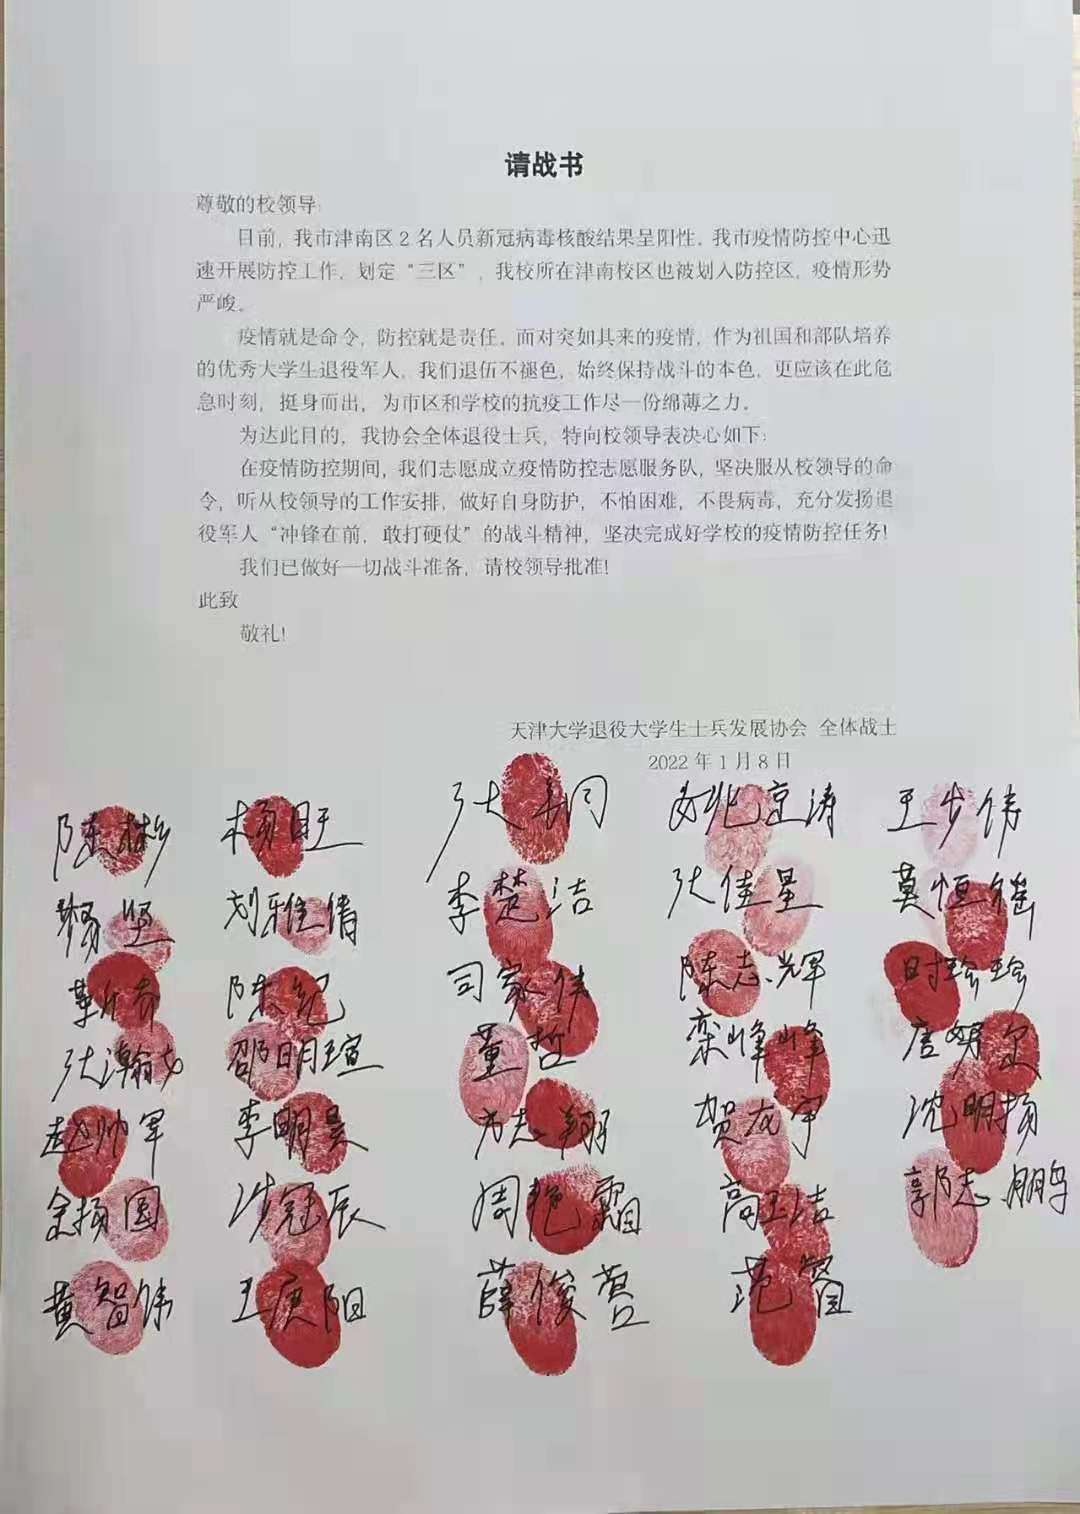 请战书
尊敬的校领导:
目前，我市津南区2名人员新冠病毒核酸结果呈阳性，我市疫情防控中心迅
速开展防控工作，划定“三区”，我校所在津南校区也被划入防控区，疫情形势
严峻。
疫情就是命令，防控就是责任。面对突如其来的疫情，作为祖国和部队培养
的优秀大学生退役军人，我们退伍不褪色，始终保持战斗的本色，更应该在此危
急时刻，挺身而出，为市区和学校的抗疫工作尽一份绵薄之力。
为达此目的，我协会全体退役士兵，特向校领导表决心如下:
在疫情防控期间，我们志愿成立疫情防控志愿服务队，坚决服从校领导的命
令，听从校领导的工作安排，做好自身防护，不怕困难，不畏病毒，充分发扬退
役军人“冲锋在前，敢打硬仗”的战斗精神，坚决完成好学校的疫情防控任务!
我们已做好一切战斗准备，请校领导批准!
此致
敬礼!
天津大学退役大学生士兵发展协会 全体战士
2022年1月8日
陈彬 杨旺 王步伟
杨坚 刘雅倩 李楚洁 张佳星
陈纪 司家伟 陈志辉 时珍珍
邵明瑄 董哲 栾峰峰
赵帅军 李明昊 贺友宇 沈明扬
余扬国 沙冠辰 周艳霜 高玉洁 郭志鹏
黄智伟 王庚阳 薛俊营